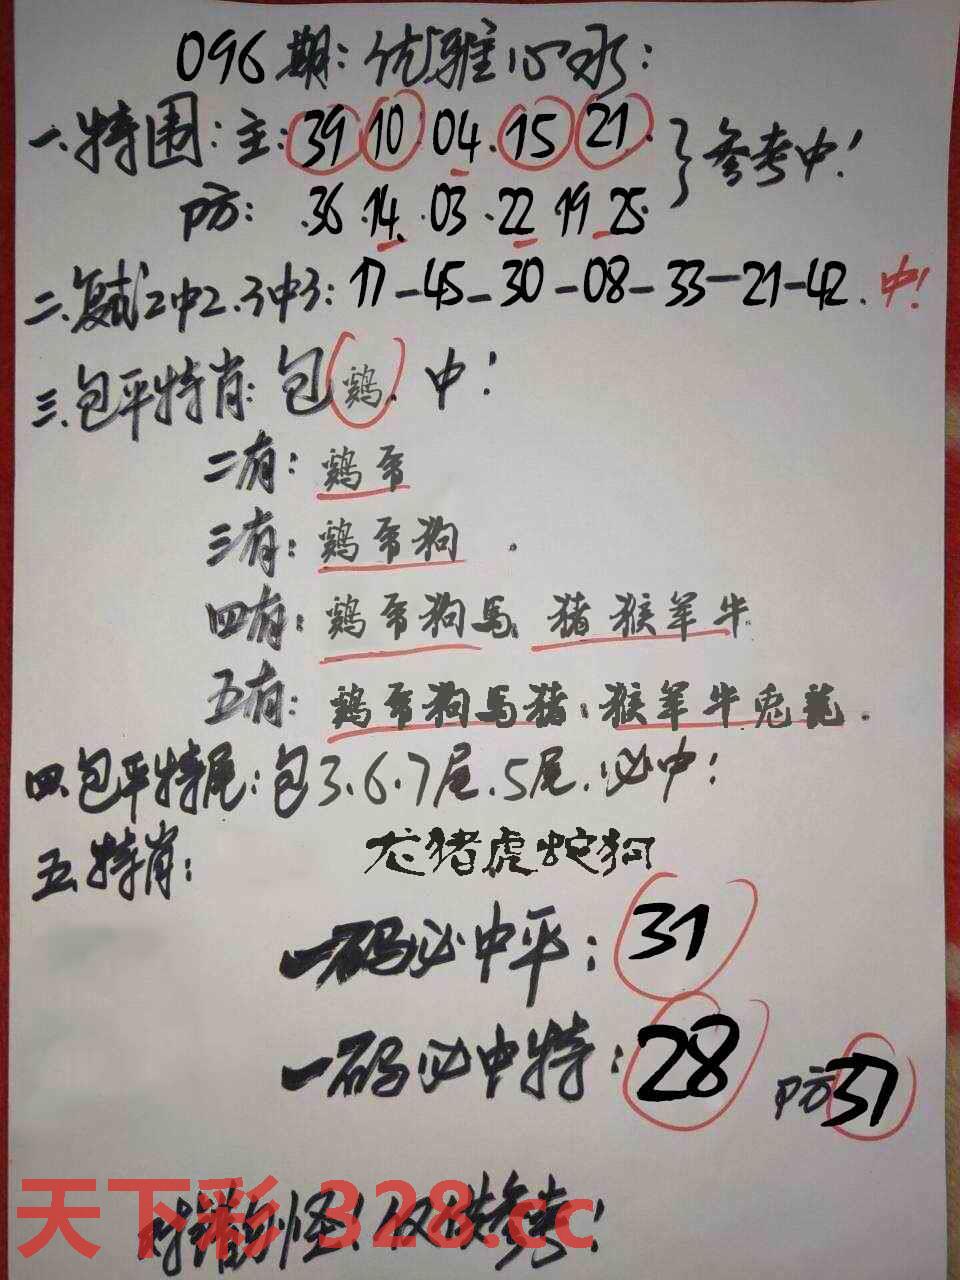 096期:优雅心水:
一.特围:主:39 10 04.15 21.}参考中!
防: .36.14.03.22 19 25.
二.复式2中2.3中3:17-45-30-08-33-21-42.中!
三.包平特肖:包鸡.中!
二有:鸡
三有:鸡 狗.
四有:鸡 狗马.猪猴羊牛
五有:鸡 狗马猪.猴羊牛兔龙.
四.包平特尾:包3.6.7尾.5尾.必中!
五.特肖: 龙猪虎蛇狗
一码必中平:31
一码必中特:28 防37
对错别怪!仅供参考!
天下彩 328.cc